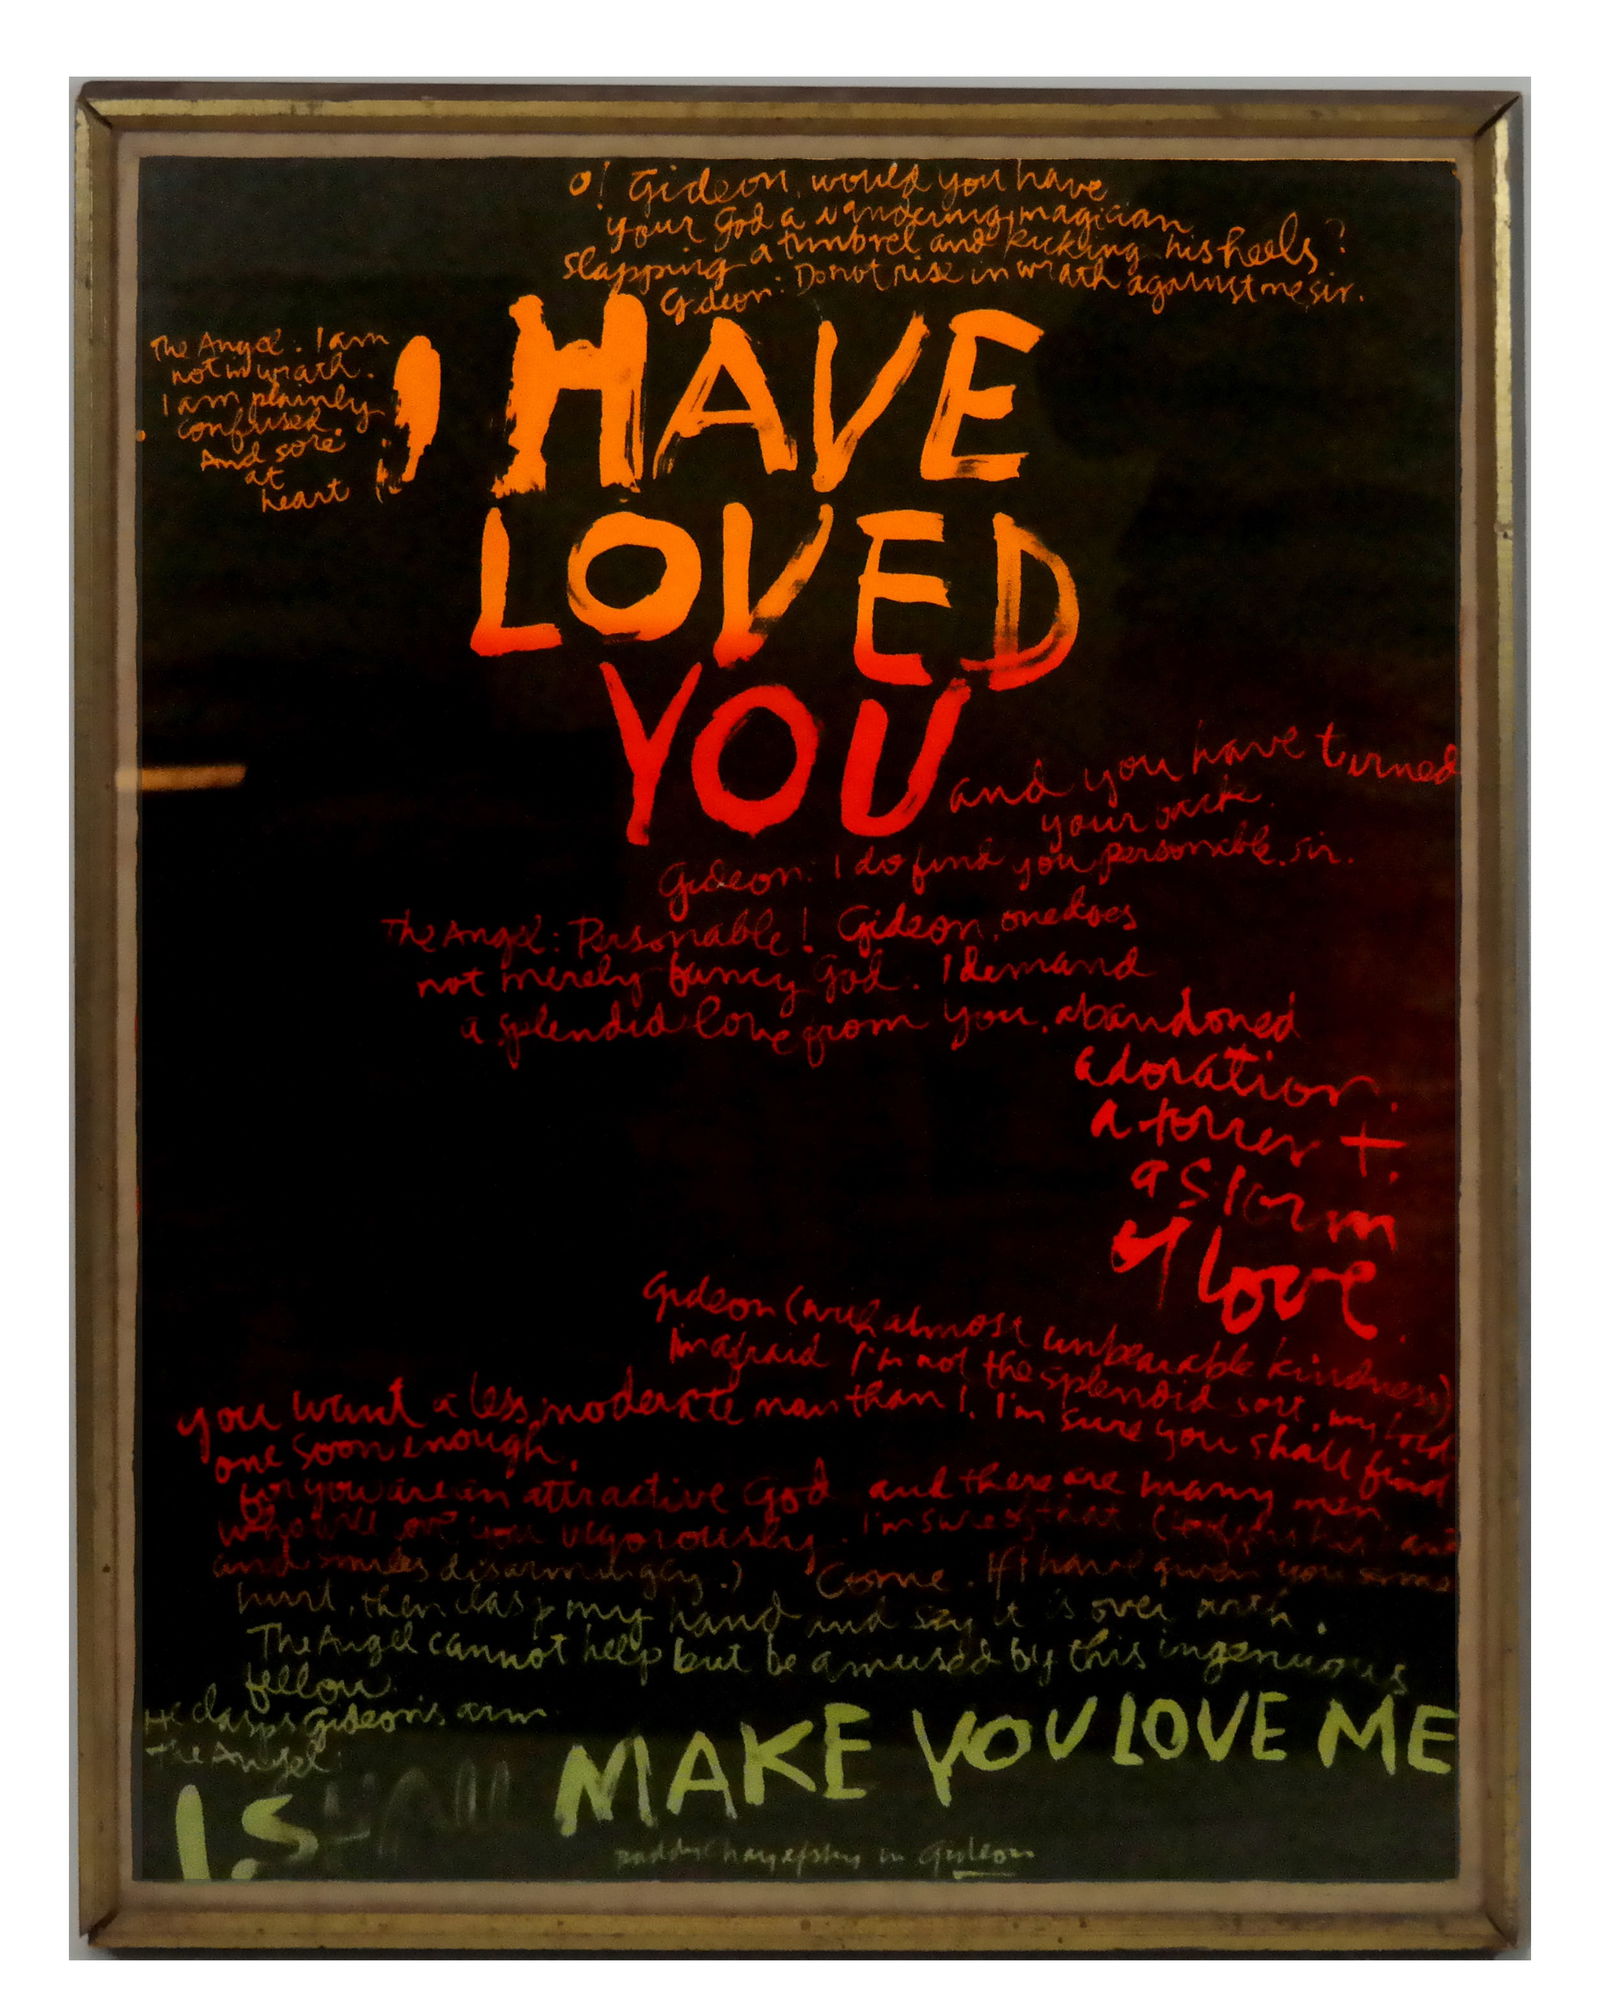 O! Gideon, would you have
your God a wandering magician
slapping a timbrel and kicking his heels?
Gideon: Do not rise in wrath against me sir.
The Angel: I am
not in wrath.
I am plainly
confused.
And sore
at
heart
I HAVE
LOVED
YOU
and you have turned
your back.
Gideon: I do find you personable, sir.
The Angel: Personable! Gideon, one does
not merely fancy God. I demand
a splendid love from you, abandoned
adoration.
a torrent.
a storm
of love.
Gideon (with almost unbearable kindness)
I'm afraid I'm not the splendid sort, my Lord
you want a less moderate man than I. I'm sure you shall find
one soon enough,
for you are an attractive God and there are many men
who will love you vigorously. I'm sure of that. (his
and smiles disarmingly.) Come. If I have given you some
hurt, then clasp my hand and say it is over with.
The Angel cannot help but be amused by this ingenuous
fellow.
He clasps Gideon's arm
The Angel:
I SHALL MAKE YOU LOVE ME
paddy chayefsky in Gideon